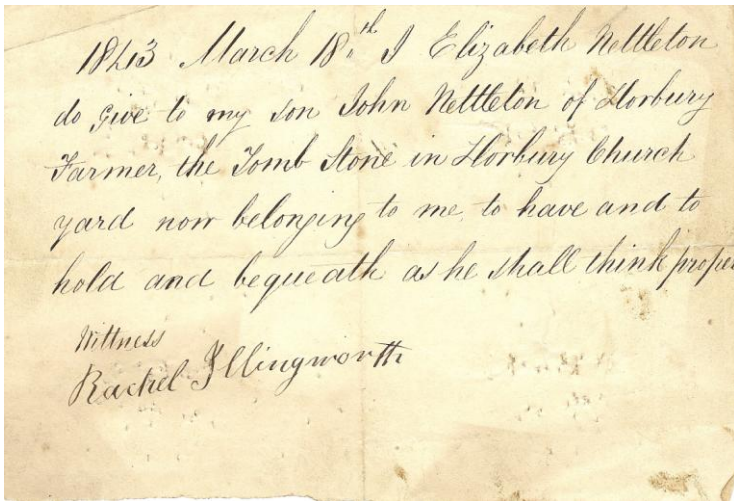 1843 March 18th I Elizabeth Nettleton
do give to my son John Nettleton of Horbury
Farmer, the Tomb Stone in Horbury Church
yard now belonging to me to have and to
hold and bequeath as he shall think proper
Wittness
Rachel Illingworth